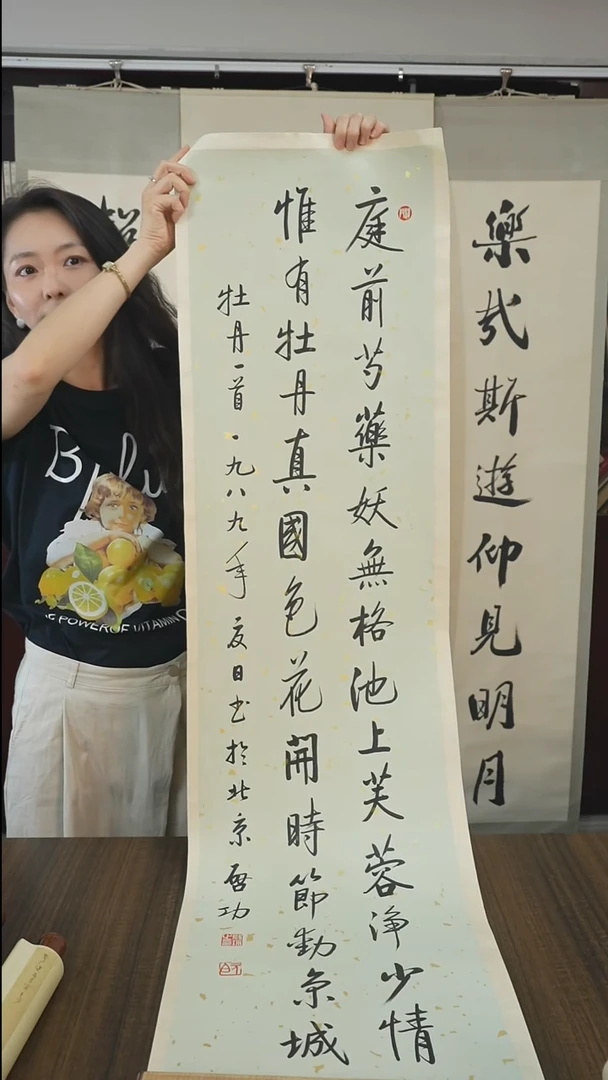 庭前芍藥妖無格池上芙蓉淨少情
惟有牡丹真國色花開時節動京城
牡丹一首一九八九年夏日书於北京啓功
樂哉斯遊仰見明月